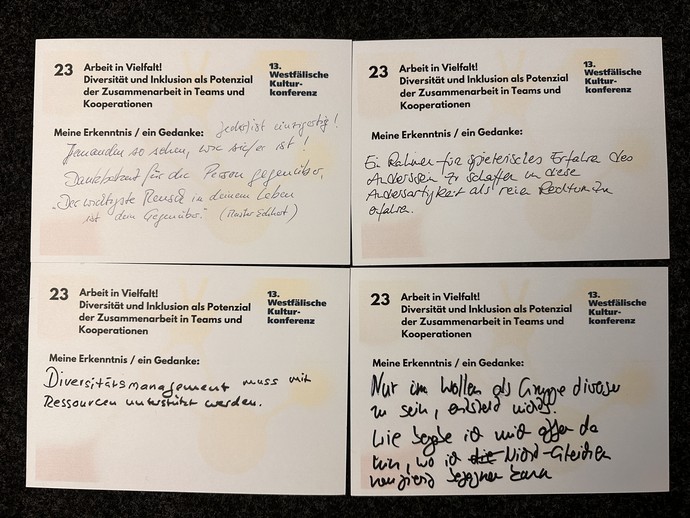 23 Arbeit in Vielfalt!
Diversität und Inklusion als Potenzial
der Zusammenarbeit in Teams und
Kooperationen
13.
Westfälische
Kultur-
konferenz
Meine Erkenntnis / ein Gedanke: Jede/r ist einzigartig!
Jemanden so sehen, wie sie/er ist!
Dankbarkeit für die Person gegenüber,
"Der wichtigste Mensch in deinem Leben
ist dein Gegenüber." (Meister Eckhart)
23 Arbeit in Vielfalt!
Diversität und Inklusion als Potenzial
der Zusammenarbeit in Teams und
Kooperationen
13.
Westfälische
Kultur-
konferenz
Meine Erkenntnis / ein Gedanke:
Ein Rahmen für spielerisches Erfahren des
Andersseins zu schaffen um diese
Andersartigkeit als
erfahren.
23 Arbeit in Vielfalt!
Diversität und Inklusion als Potenzial
der Zusammenarbeit in Teams und
Kooperationen
13.
Westfälische
Kultur-
konferenz
Meine Erkenntnis / ein Gedanke:
Diversitätsmanagement muss mit
Ressourcen unterstützt werden.
23 Arbeit in Vielfalt!
Diversität und Inklusion als Potenzial
der Zusammenarbeit in Teams und
Kooperationen
13.
Westfälische
Kultur-
konferenz
Meine Erkenntnis / ein Gedanke:
Nur im Wollen als Gruppe diverser
zu sein, entsteht nichts.
Wie begebe ich mich offen da
hin, wo ich die Nicht-Gleichen
neugierig begegnen kann